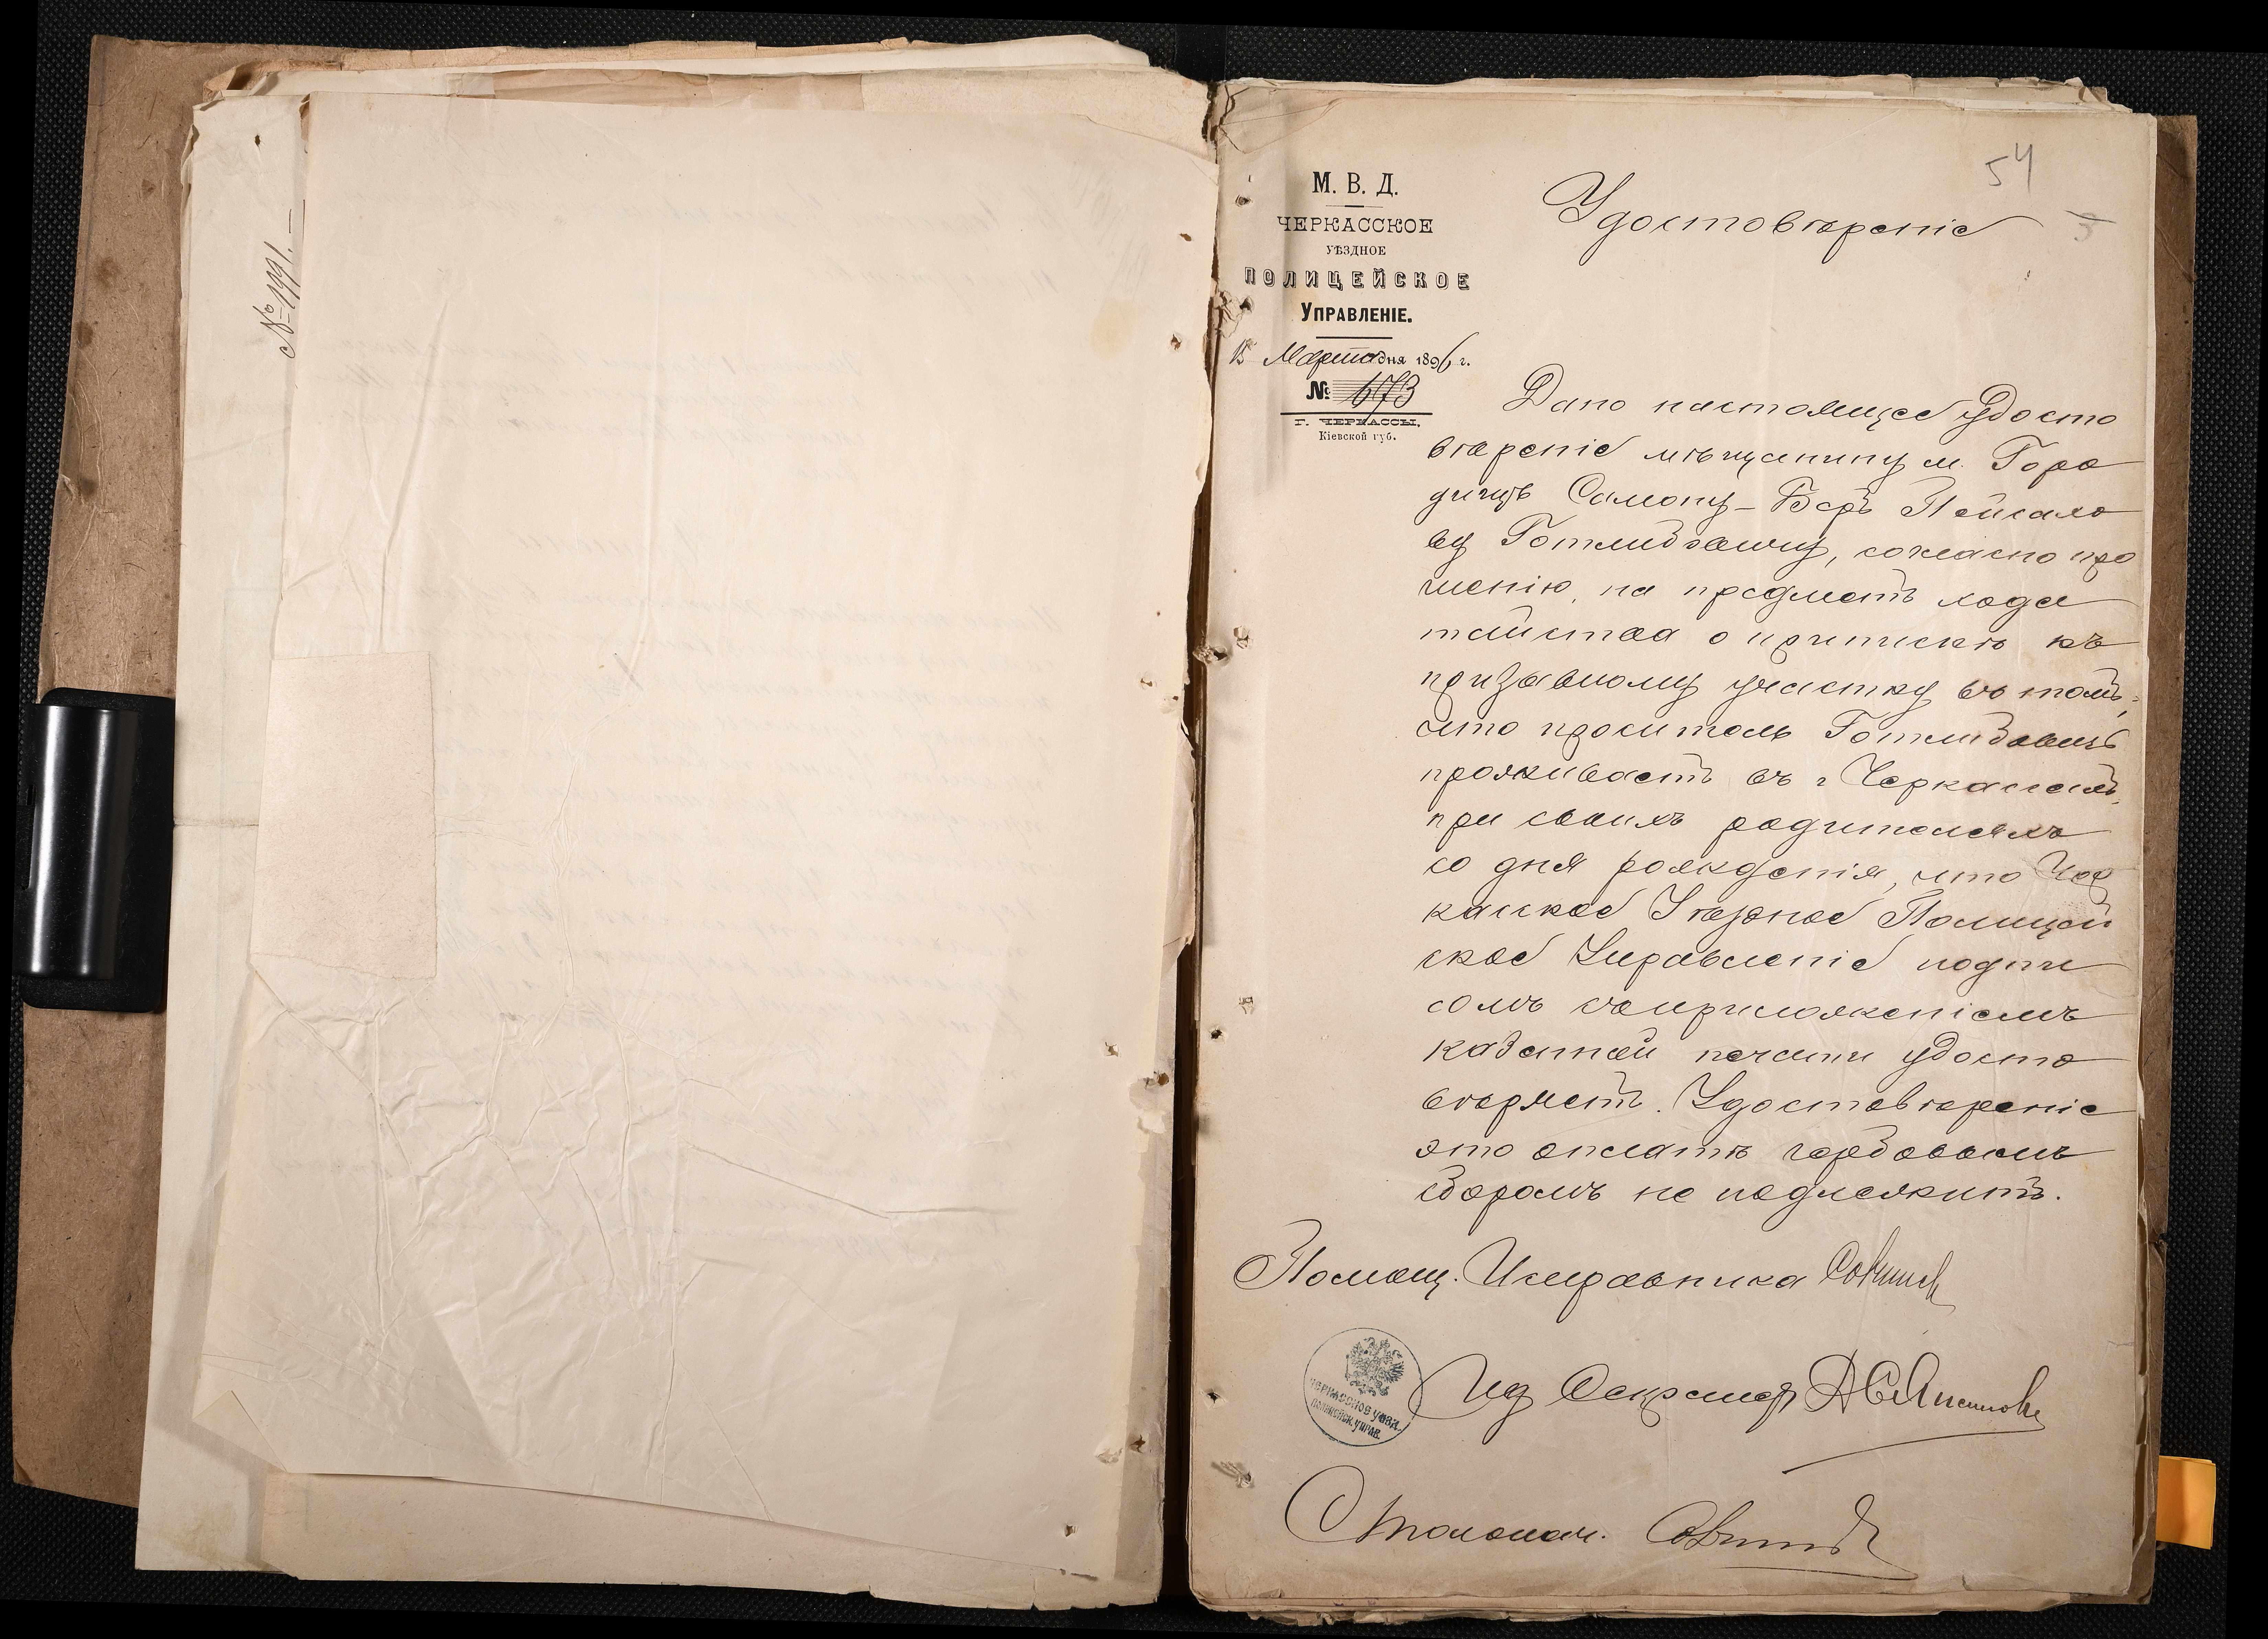 № 1991.
54
М. В. Д.
ЧЕРКАССКОЕ
УѢЗДНОЕ
ПОЛИЦЕЙСКОЕ
Управленіе.
Марта дня 1896 г.
№ 673
Г. ЧЕРКАССЫ,
Кіевской губ.
Удостовѣреніе
Дано настоящее Удосто
вѣреніе мѣщанину м. Горо
дищъ Самону-Беръ Пейсахо
ву Готлибовичу, согласно про
шенію, на предметъ хода
тайства о припискѣ къ
призывному участку въ томъ,
что проситель Готлибовичъ
проживаетъ въ г Черкассахъ,
при своихъ родителяхъ
со дня рожденія, что Чер
касское Уѣздное Полицей
ское Управленіе подпи
сомъ съ приложеніемъ
казенной печати удосто
вѣряетъ. Удостовѣреніе
это оплатѣ гербовымъ
сборомъ не подлежитъ.
Помощ. Исправника
Ид Секретаря
ЧЕРКАССКОЕ УѢЗД.
ПОЛИЦЕЙСК. УПРАВ.
Столонач.